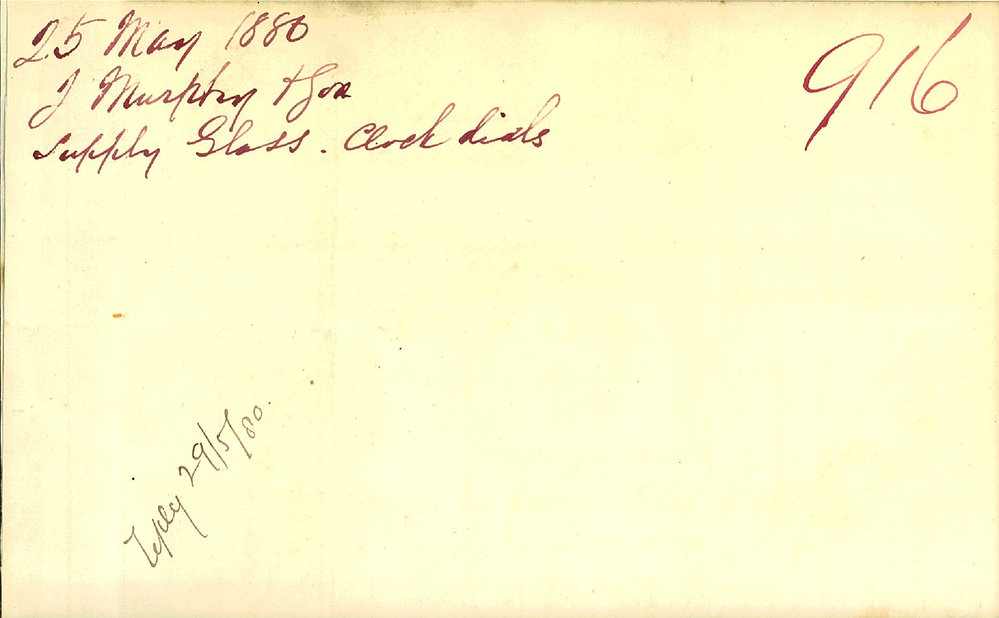 25 May 1880
J Murphy & Son
Supply Glass. Clock dials
916
Reply 29/5/80.